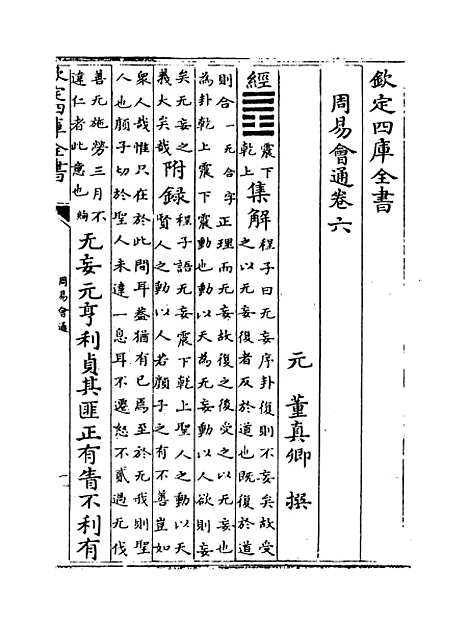 欽定四庫全書
周易會通卷六
元 董真卿 撰
經 ䷘ 震下
乾上 集解 程子曰无妄序卦復則不妄矣故受
之以无妄復者反於道也既復於道
則合一无合字正理而无妄故復之後受之以无妄也
為卦乾上震下震動也動以天為无妄動以人欲則妄
矣无妄之
義大矣哉 附録 程子語无妄震下乾上聖人之動以天
賢人之動以人若顔子之有不善豈如
衆人哉惟只在於此間耳蓋猶有已焉至於无我則聖
人也顔子切於聖人未達一息耳不遷怒不貳過无伐
善无施勞三月不
違仁者此意也 絢 无妄元亨利貞其匪正有眚不利有
欽定四庫全書
周易會通
一